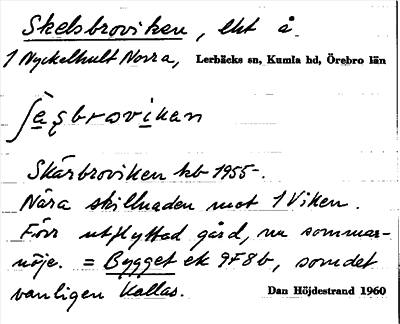 Skelsbroviken, lht å
1 Nyckelhult Norra, Lerbäcks sn, Kumla hd, Örebro län
Skärbroviken kb 1955-.
Nära skillnaden mot 1 Viken.
Förr utflyttad gård, nu sommar-
nöje. = Bygget ek 9F8b, som det
vanligen kallas. Dan Höjdestrand 1960